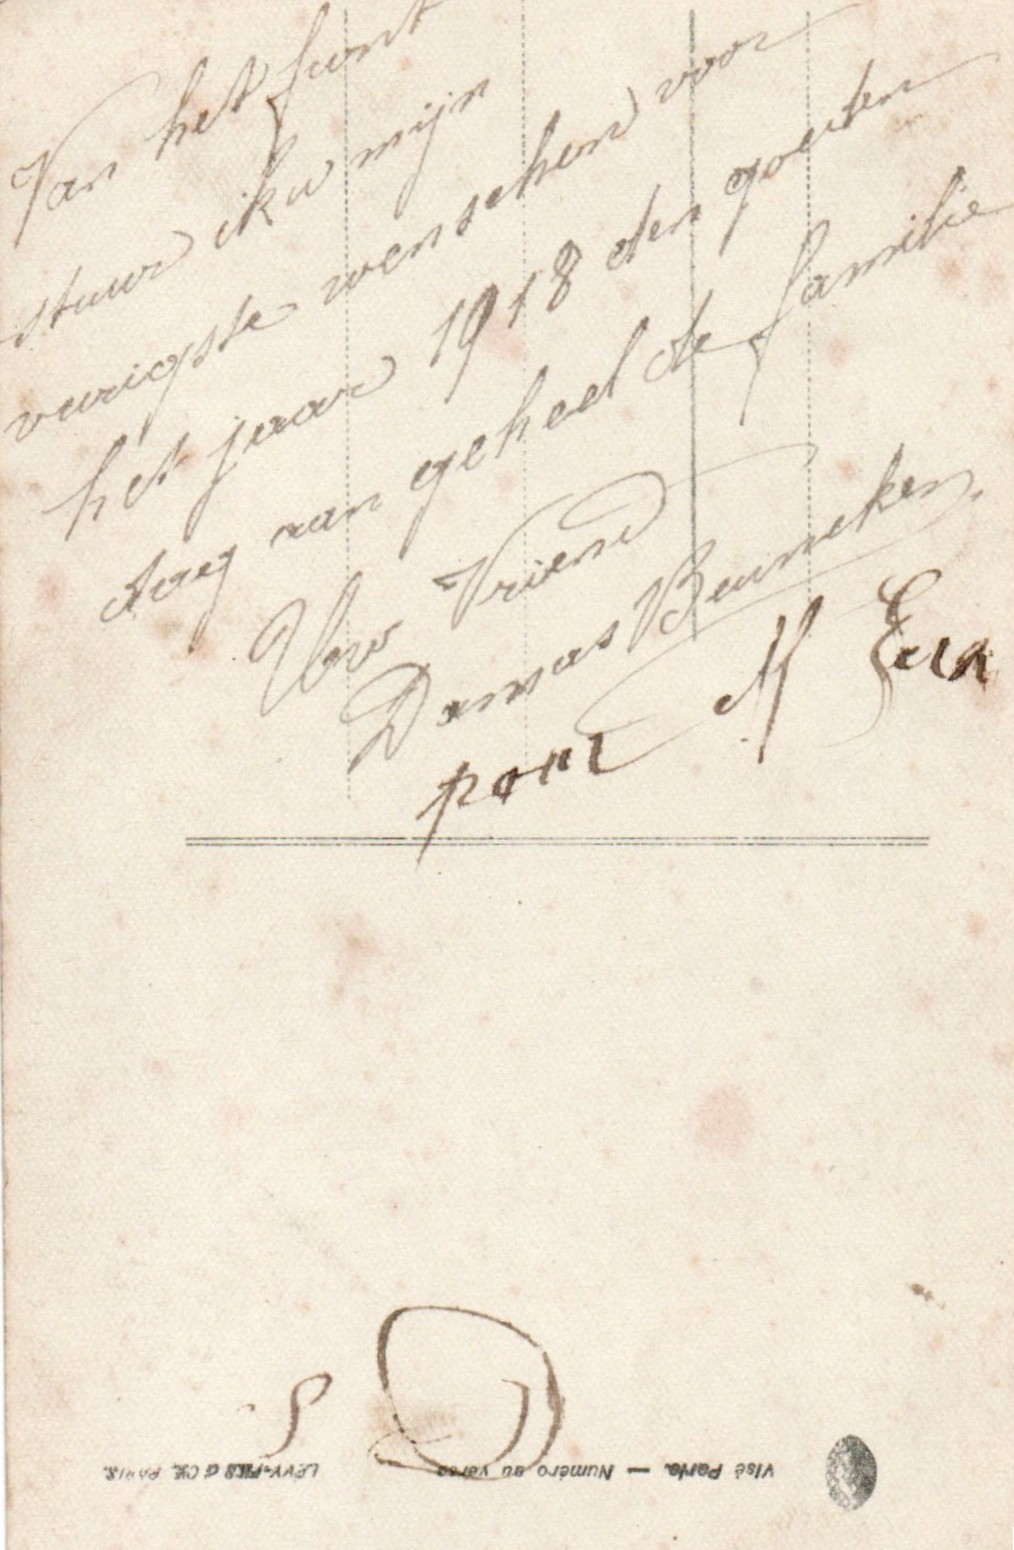 Van het front
stuur ik u mijn
vurigste wenschen voor
het jaar 1918 den goeden
dag van geheel de familie
Uw Vriend
Damas Beunicken
pour M
S D
Visé Paris. — Numéro au verso
LÉVY-FILS & CIE, PARIS.